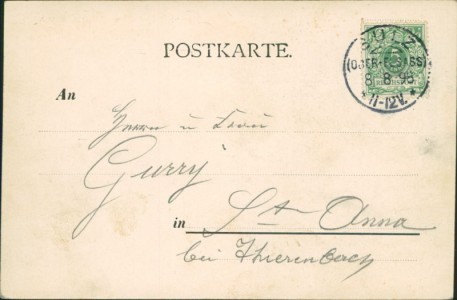 SULZ
(OBER-ELSASS)
8.8.98.
* 11-12V. *
POSTKARTE.
An
Herrn u Frau
Gurry
in St Anna
bei Thierenbach